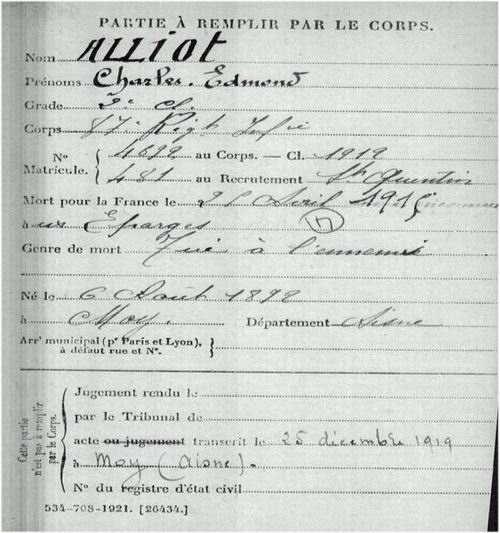 PARTIE À REMPLIR PAR LE CORPS.
Nom ALLIOT
Prénoms Charles. Edmond
Grade 2e Cl.
Corps Régt Infie
No 4692 au Corps. — Cl. 1912
Matricule. 481 au Recrutement St Quentin
Mort pour la France le Avril 1915
à Eparges
Genre de mort Tué à l'ennemi
Né le 6 Août 1892
à Moy. Département Aisne
Arrt municipal (pr Paris et Lyon),
à défaut rue et No.
Cette partie
n'est pas à remplir
par le Corps.
Jugement rendu le
par le Tribunal de
acte ou jugement transcrit le 25 décembre 1919
à Moy (Aisne).
No du registre d'état civil
534-708-1921. [26434.]